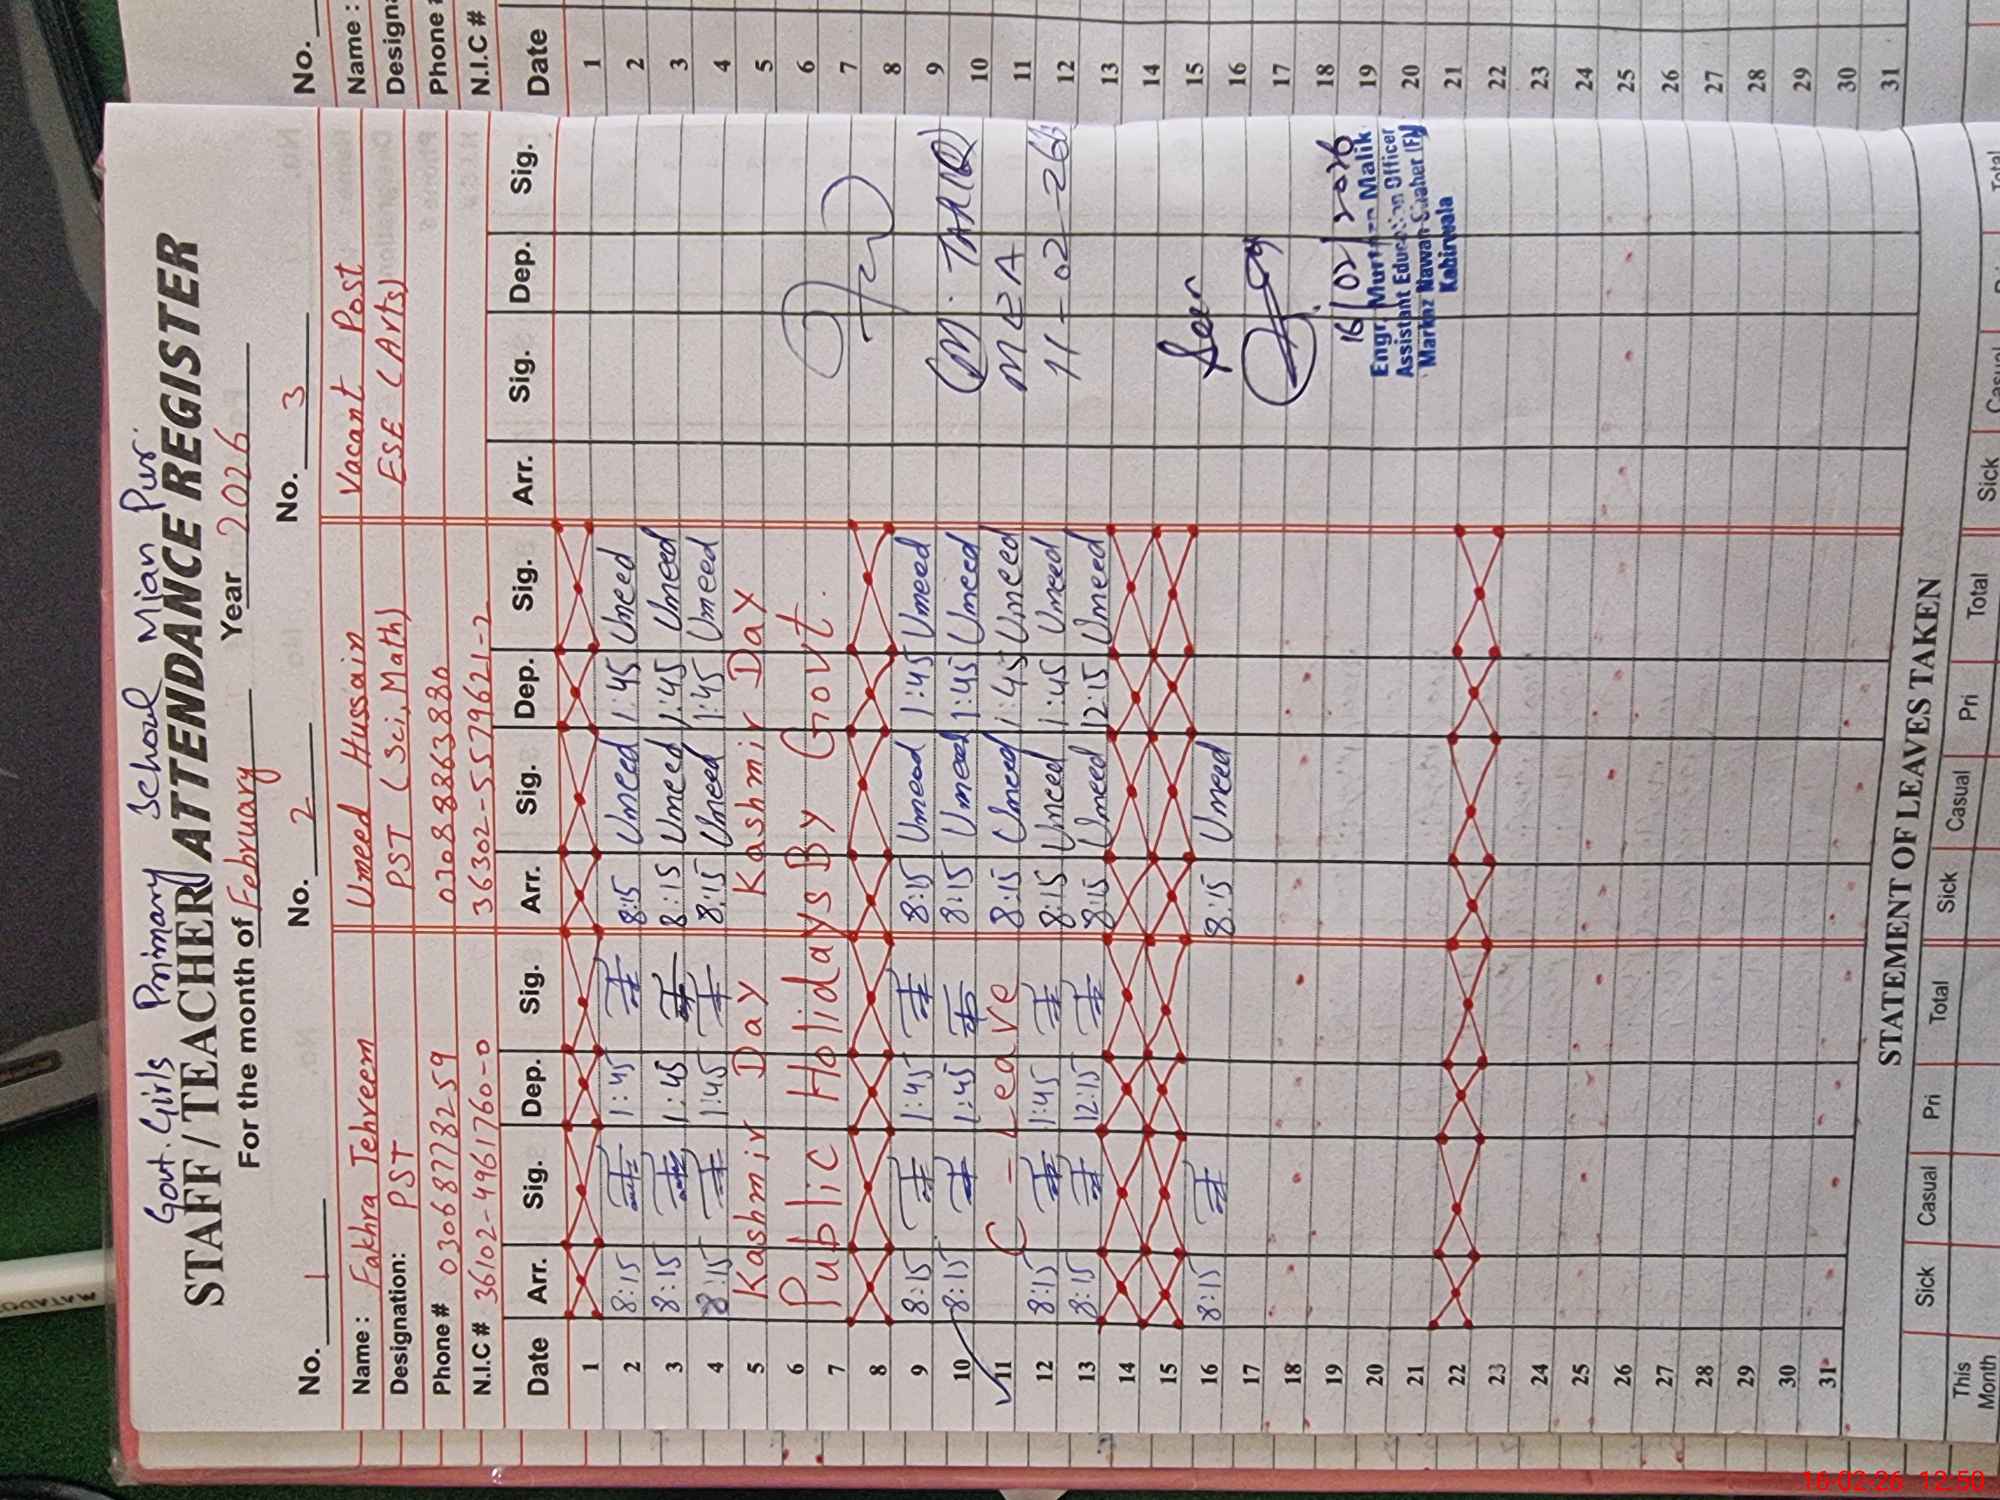 Govt. Girls Primary School Mian Pur
STAFF/TEACHER ATTENDANCE REGISTER
For the month of February Year 2026
No. 1 No. 2 No. 3
Name: Fakhra Tehreem Umeed Hussain Vacant Post
Designation: PST PST (Sci, Math) ESE (Arts)
Phone # 03068778259 03088863880
N.I.C # 36102-4961760-0 36302-5579621-7
Date Arr. Sig. Dep. Sig. Arr. Sig. Dep. Sig. Arr. Sig. Dep. Sig.
1
2 8:15 1:45 8:15 Umeed 1:45 Umeed
3 8:15 1:45 8:15 Umeed 1:45 Umeed
4 8:15 1:45 8:15 Umeed 1:45 Umeed
5 Kashmir Day Kashmir Day
6 Public Holidays By Govt.
7
8
9 8:15 1:45 8:15 Umeed 1:45 Umeed
10 8:15 1:45 8:15 Umeed 1:45 Umeed (M. TARIQ)
11 C - Leave 8:15 Umeed 1:45 Umeed MEA
12 8:15 1:45 8:15 Umeed 1:45 Umeed 11-02-26
13 8:15 12:15 8:15 Umeed 12:15 Umeed
14
15 Seen
16 8:15 8:15 Umeed
17
18
19 16/02/2026
20 Engr. Murtaza Malik
Assistant Education Officer
21 Markaz Nawan Shaher (F)
Kabirwala
22
23
24
25
26
27
28
29
30
31
STATEMENT OF LEAVES TAKEN
Sick Casual Pri Total Sick Casual Pri Total Sick Casual Total
This
Month
No.
Name :
Designa
Phone #
N.I.C #
Date
1
2
3
4
5
6
7
8
9
10
11
12
13
14
15
16
17
18
19
20
21
22
23
24
25
26
27
28
29
30
31
MATADO
16-02-26 12:50